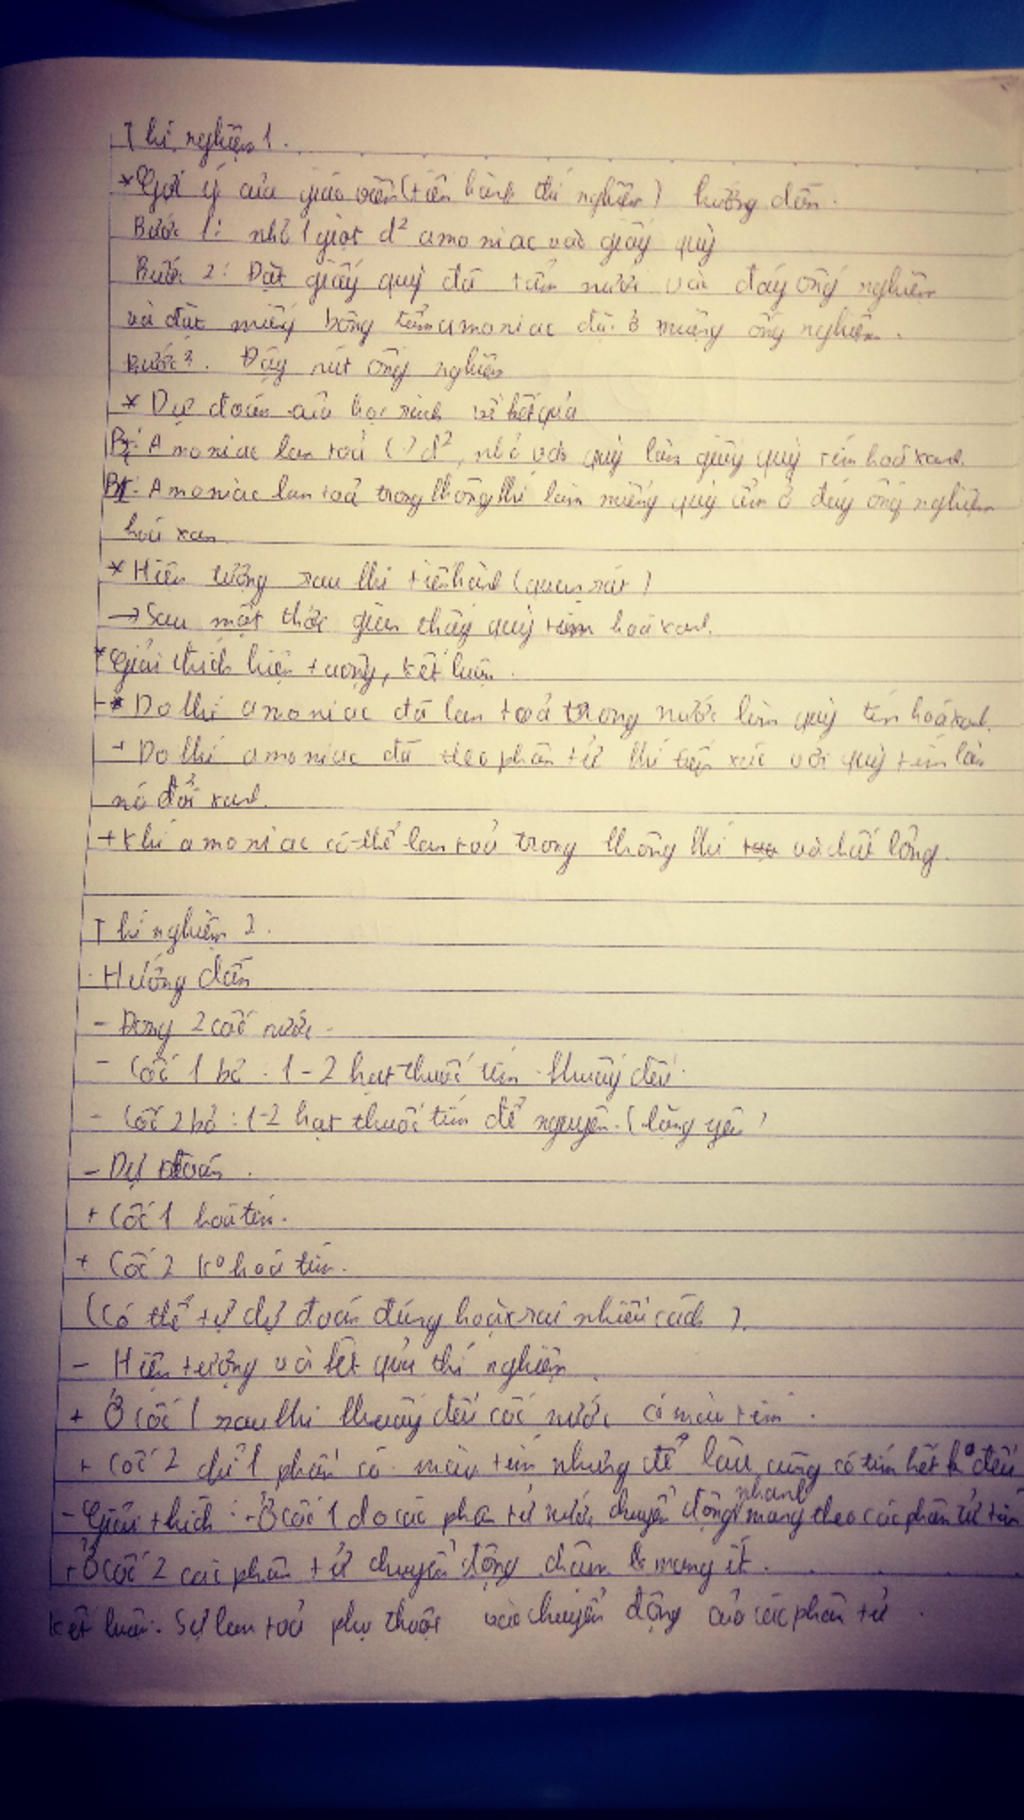 Thí nghiệm 1.
* Gợi ý của giáo viên (tiến hành thí nghiệm) hướng dẫn.
Bước 1: nhỏ 1 giọt d² amoniac vào giấy quỳ
Bước 2: Đặt giấy quỳ đã tẩm nước vào đáy ống nghiệm
và đặt miếng bông tẩm amoniac đặc ở miệng ống nghiệm.
Bước 3. Đậy nút ống nghiệm
* Dự đoán của học sinh về kết quả
Amoniac lan toả d², nhỏ vào quỳ làm giấy quỳ tím hoá xanh.
Amoniac lan toả trong không khí làm miếng quỳ ẩm ở đáy ống nghiệm
hoá xan
* Hiện tượng sau khi tiến hành (quan sát)
→ Sau một thời gian thấy quỳ tím hoá xanh.
* Giải thích hiện tượng, kết luận.
+ Do khí amoniac đã lan toả trong nước làm quỳ tím hoá xanh.
+ Do khí amoniac đã theo phân tử khí tiếp xúc với quỳ tím làm
nó đổi xanh.
+ Khí amoniac có thể lan toả trong không khí và chất lỏng.
Thí nghiệm 2.
- Hướng dẫn
- Dùng 2 cốc nước.
- Cốc 1 bỏ : 1-2 hạt thuốc tím khuấy đều.
- Cốc 2 bỏ : 1-2 hạt thuốc tím để nguyên. (lặng yên)
- Dự đoán.
+ Cốc 1 hoá tím.
+ Cốc 2 kº hoá tím.
(Có thể tự dự đoán đúng hoặc sai nhiều cách).
- Hiện tượng và kết quả thí nghiệm.
+ Ở cốc 1 sau khi khuấy đều cốc nước có màu tím.
+ Cốc 2 chỉ 1 phần có màu tím nhưng để lâu cũng có tím hết kº đều
- Giải thích : + Ở cốc 1 do các phân tử nước chuyển động nhanh mang theo các phân tử tím
+ Ở cốc 2 các phân tử chuyển động chậm mang ít.
Kết luận: Sự lan toả phụ thuộc vào chuyển động của các phân tử.